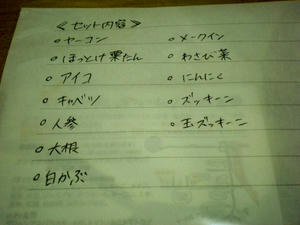 ≪セット内容≫
○ヤーコン
○ほっとけ栗たん
○アイコ
○キャベツ
○人参
○大根
○白かぶ
○メークイン
○わさび菜
○にんにく
○ズッキーニ
○玉ズッキーニ